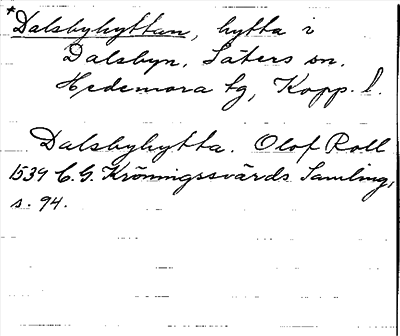 *Dalsbyhyttan, hytta i
Dalsbyn, Säters sn.
Hedemora tg, Kopp. l.
Dalsbyhytta. Olof Roll
1539 C. G. Kröningssvärds Samling,
s. 94.